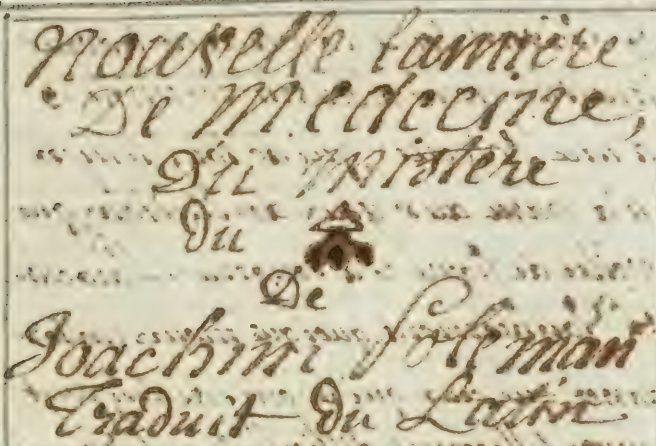 Nouvelle lumière
De Medecine,
Du Mistère
du 🜍
De
Joachim Poleman
Traduit du Latin